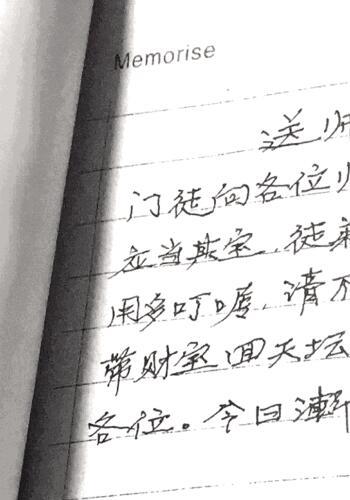 Memorise
送师
门徒向各位师
应当其室，徒
用多叮嘱，请不
带财宝回天坛
各位。今日渐